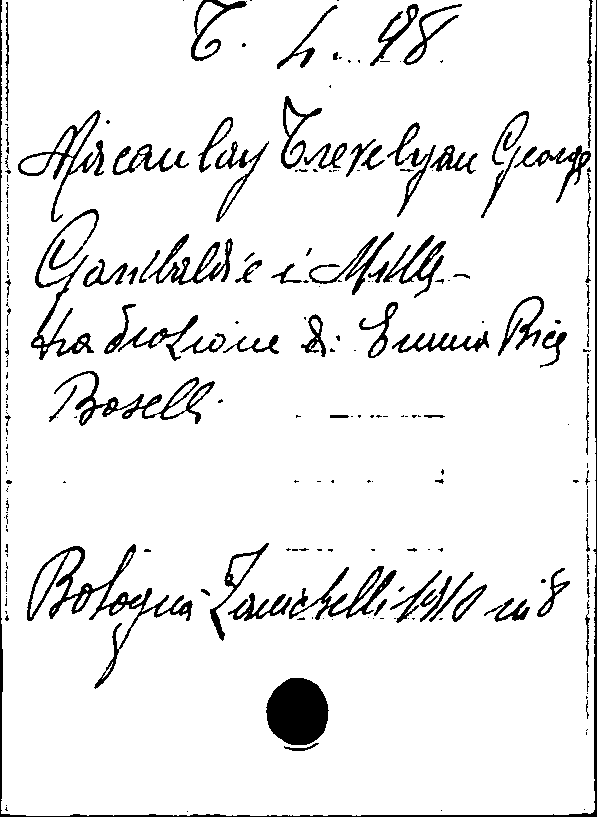 T. 4. 98
Macaulay Trevelyan George
Garibaldi e i Mille -
traduzione di Emma Rice
Boselli.
Bologna Zanichelli 1910 in 8